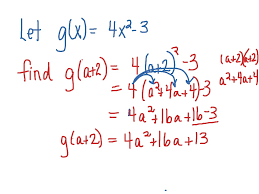 Let g(x) = 4x²-3
find g(a+2) = 4(a+2)²-3
(a+2)(a+2)
a²+4a+4
= 4(a²+4a+4)-3
= 4a²+16a+16-3
g(a+2) = 4a²+16a+13